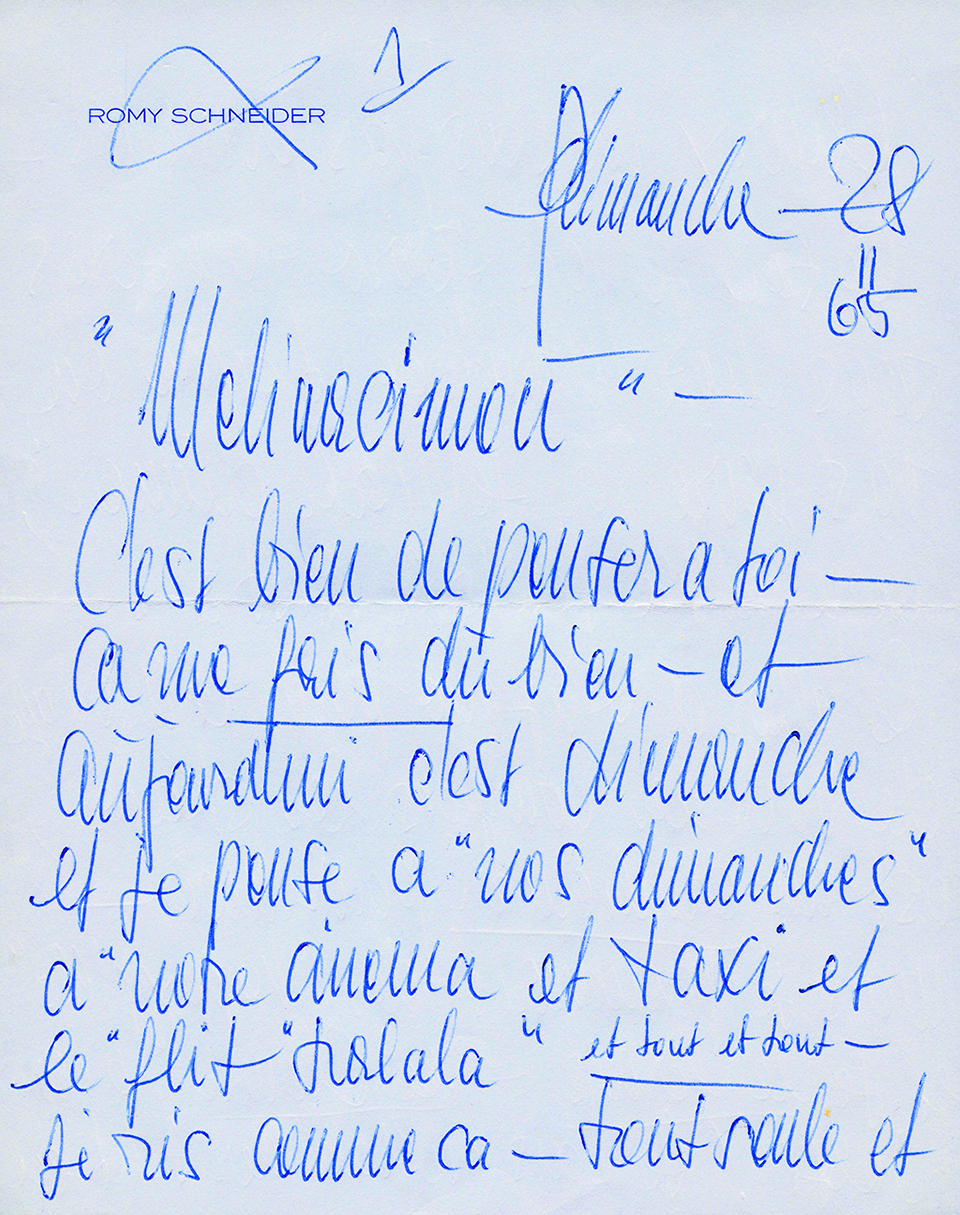 ROMY SCHNEIDER
1
Dimanche – 28
11
65
"Melinacimou" –
C'est bien de penser a toi –
ca me fais dù bien – et
aùjourdhui c'est dimanche
et je pense a "nos dimanches"
a "notre cinema et taxi" et
le "flit" tralala" et tout et tout –
je ris comme ca – tout seule et